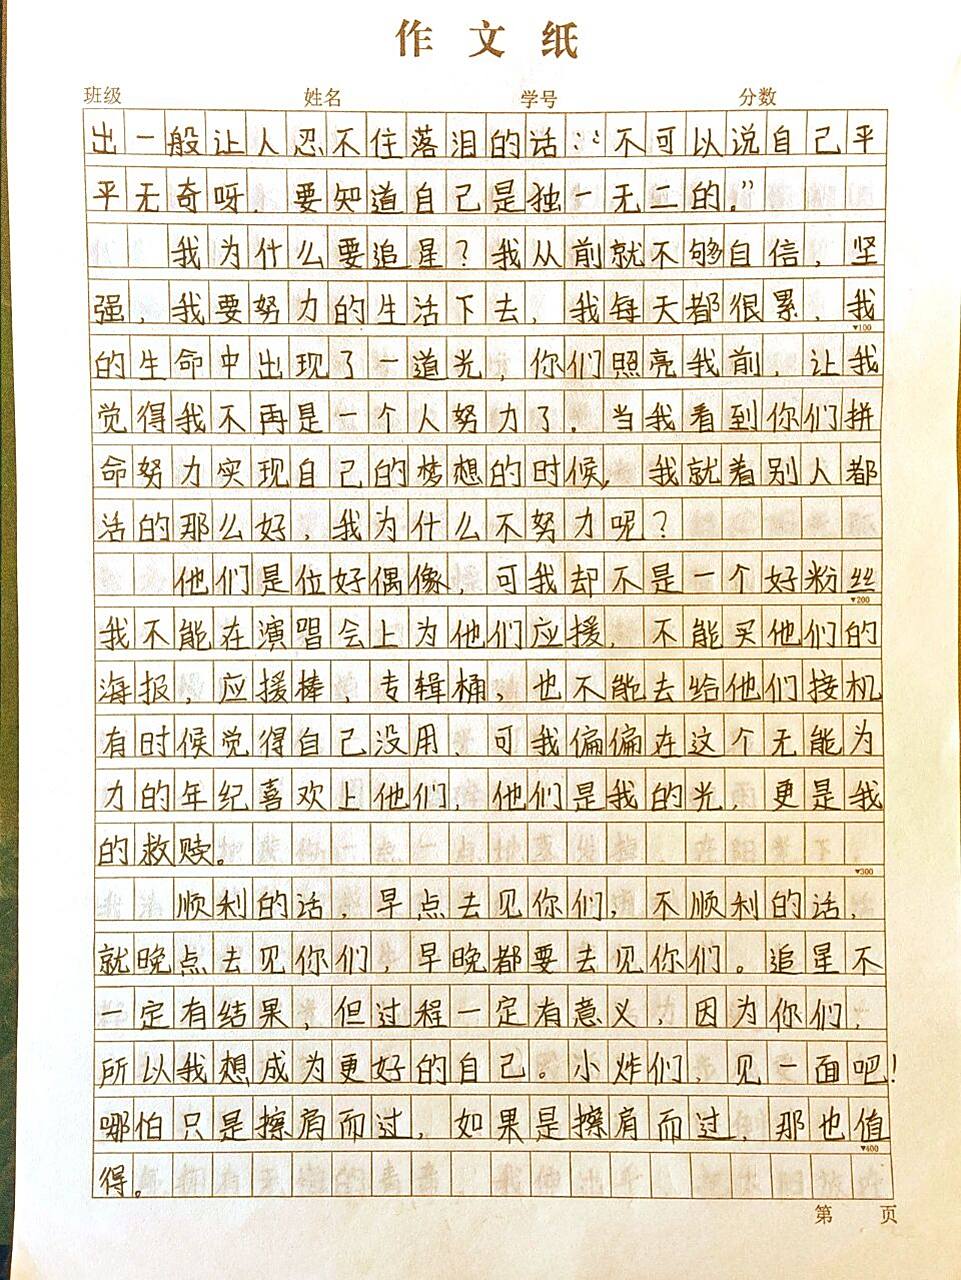 作文纸
班级 姓名 学号 分数
出一般让人忍不住落泪的话:“不可以说自己平
平无奇呀，要知道自己是独一无二的。”
我为什么要追星？我从前就不够自信，坚
强，我要努力的生活下去，我每天都很累，我
▼100
的生命中出现了一道光，你们照亮我前，让我
觉得我不再是一个人努力了，当我看到你们拼
命努力实现自己的梦想的时候，我就着别人都
活的那么好，我为什么不努力呢？
他们是位好偶像，可我却不是一个好粉丝
▼200
我不能在演唱会上为他们应援，不能买他们的
海报，应援棒，专辑桶，也不能去给他们接机
有时候觉得自己没用，可我偏偏在这个无能为
力的年纪喜欢上他们，他们是我的光，更是我
的救赎。
▼300
顺利的话，早点去见你们，不顺利的话，
就晚点去见你们，早晚都要去见你们。追星不
一定有结果，但过程一定有意义，因为你们，
所以我想成为更好的自己。小炸们，见一面吧！
哪怕只是擦肩而过，如果是擦肩而过，那也值
▼400
得。
第 页